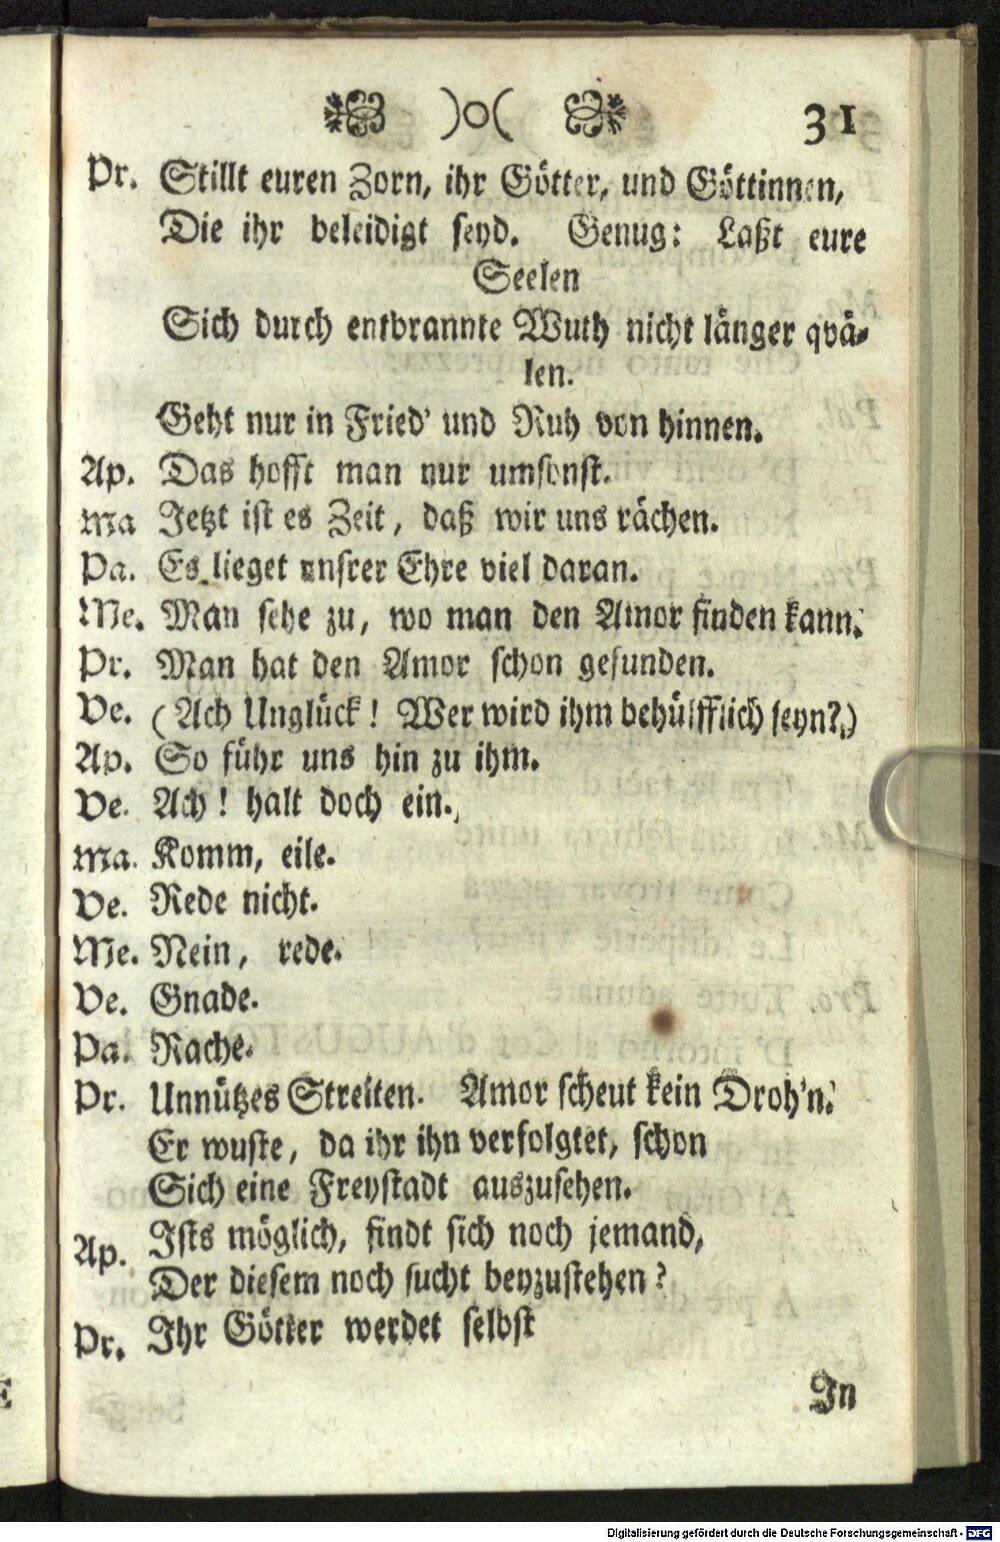 )o( 31
Pr. Stillt euren Zorn, ihr Götter, und Göttinnen,
Die ihr beleidigt seyd. Genug: Laßt eure
Seelen
Sich durch entbrannte Wuth nicht länger qvä-
len.
Geht nur in Fried' und Ruh von hinnen.
Ap. Das hofft man nur umsonst.
Ma Jetzt ist es Zeit, daß wir uns rächen.
Pa. Es lieget unsrer Ehre viel daran.
Me. Man sehe zu, wo man den Amor finden kann.
Pr. Man hat den Amor schon gefunden.
Ve. (Ach Unglück! Wer wird ihm behülfflich seyn?)
Ap. So führ uns hin zu ihm.
Ve. Ach! halt doch ein.
Ma. Komm, eile.
Ve. Rede nicht.
Me. Nein, rede.
Ve. Gnade.
Pa. Rache.
Pr. Unnützes Streiten. Amor scheut kein Droh'n.
Er wuste, da ihr ihn verfolgtet, schon
Sich eine Freystadt auszusehen.
Ap. Ists möglich, findt sich noch jemand,
Der diesem noch sucht beyzustehen?
Pr. Ihr Götter werdet selbst
In
Digitalisierung gefördert durch die Deutsche Forschungsgemeinschaft - DFG